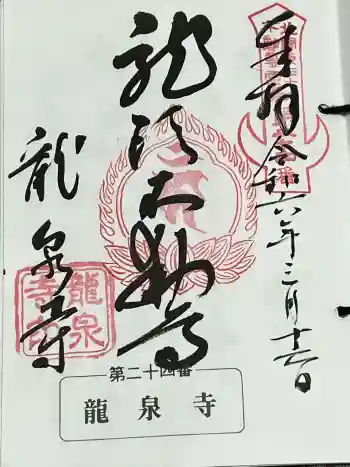 奉拝 令和六年三月
龍頭不動尊
龍泉寺
龍泉寺印
第二十四番
龍泉寺